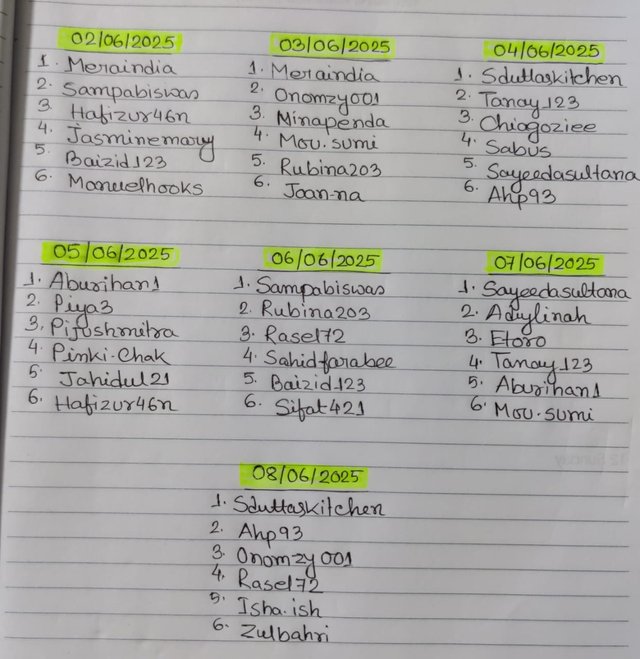 02/06/2025
1. Meraindia
2. Sampabiswas
3. Hafizur46n
4. Jasminemary
5. Baizid123
6. Manuelhooks
03/06/2025
1. Meraindia
2. Onomzy001
3. Minapenda
4. Mou.sumi
5. Rubina203
6. Joan-na
04/06/2025
1. Sduttaskitchen
2. Tanay123
3. Chiogoziee
4. Sabus
5. Sayeedasultana
6. Ahp93
05/06/2025
1. Aburihan1
2. Piya3
3. Pijushmitra
4. Pinki-Chak
5. Jahidul21
6. Hafizur46n
06/06/2025
1. Sampabiswas
2. Rubina203
3. Rasel72
4. Sahidfarabee
5. Baizid123
6. Sifat421
07/06/2025
1. Sayeedasultana
2.
3. Etoro
4. Tanay123
5. Aburihan1
6. Mou.sumi
08/06/2025
1. Sduttaskitchen
2. Ahp93
3. Onomzy001
4. Rasel72
5. Isha.ish
6. Zulbahri